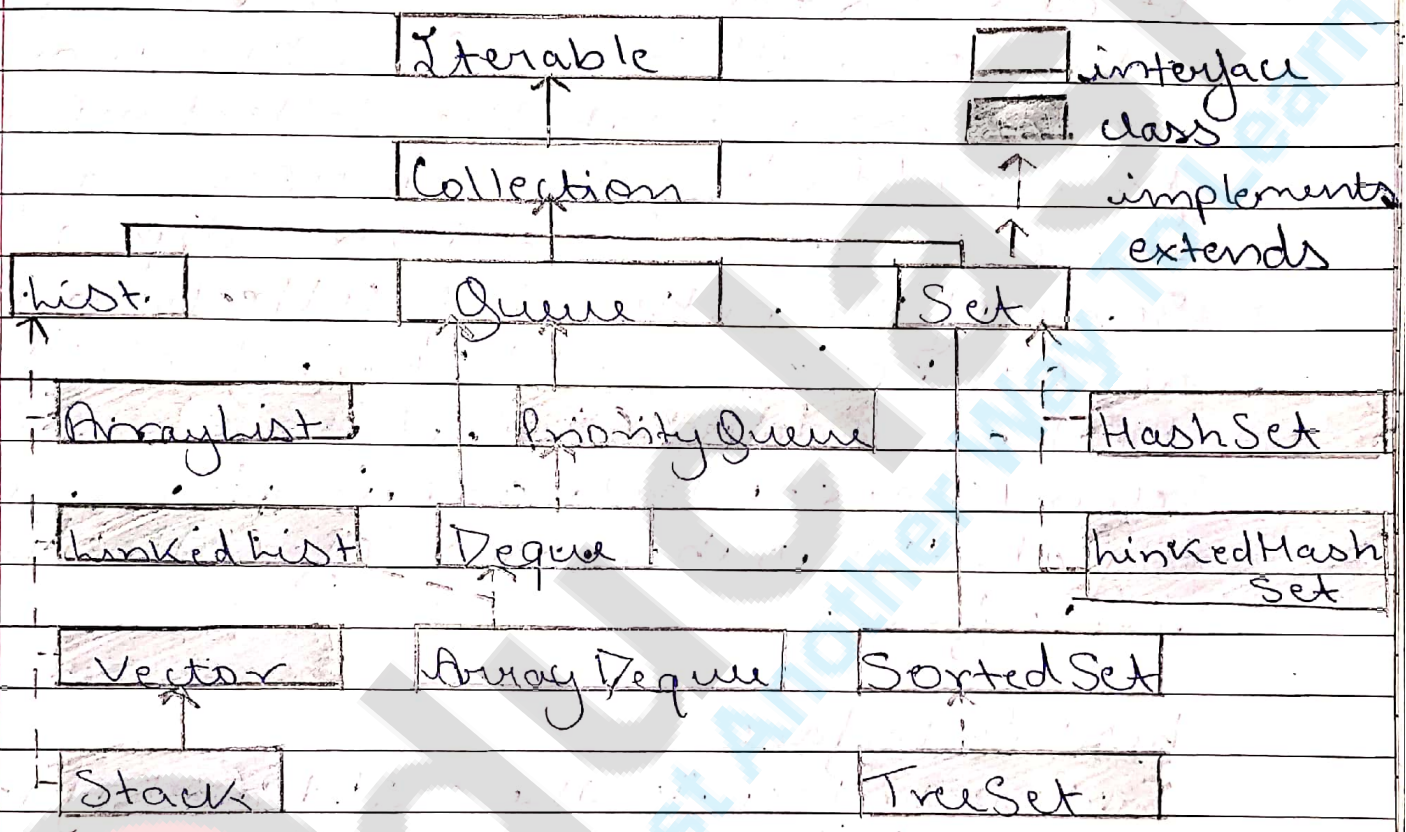 Iterable
interface
class
Collection
implements
extends
List
Queue
Set
ArrayList
PriorityQueue
HashSet
LinkedList
Deque
LinkedHash
Set
Vector
ArrayDeque
SortedSet
Stack
TreeSet
Just Another Way To Learn